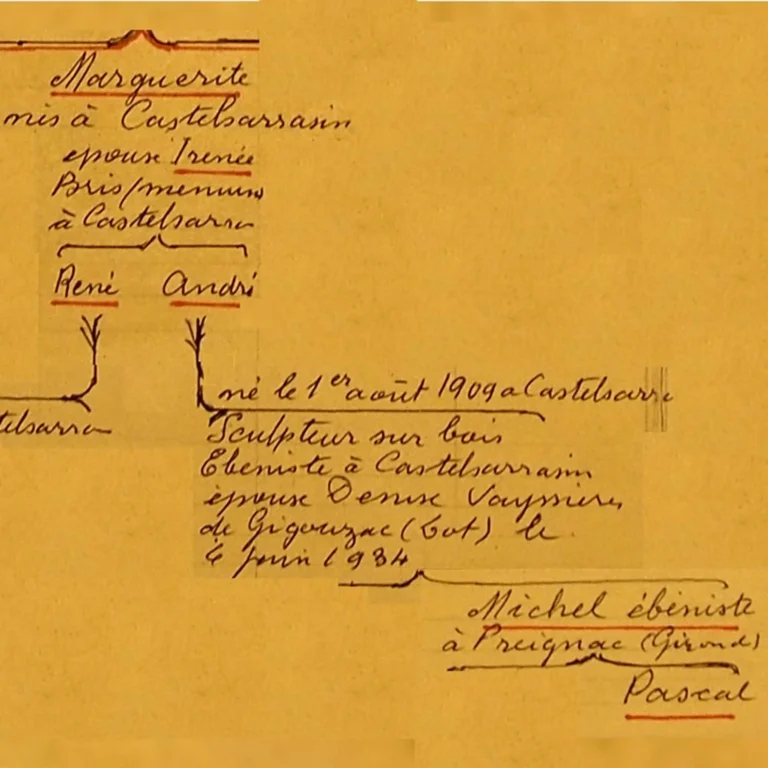 Marguerite
nés à Castelsarrasin
épouse Irenée
Bris/menuis
à Castelsarra
René André
né le 1er août 1909 a Castelsarra
telsarra
Sculpteur sur bois
Ebeniste à Castelsarrasin
épouse Denise Vayssière
de Gigouzac (Lot) le
juin 1934
Michel ébéniste
à Preignac (Girond)
Pascal